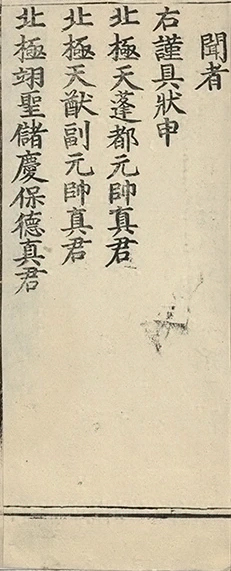 聞者
右謹具狀申
北極天蓬都元帥真君
北極天猷副元帥真君
北極翊聖儲慶保德真君